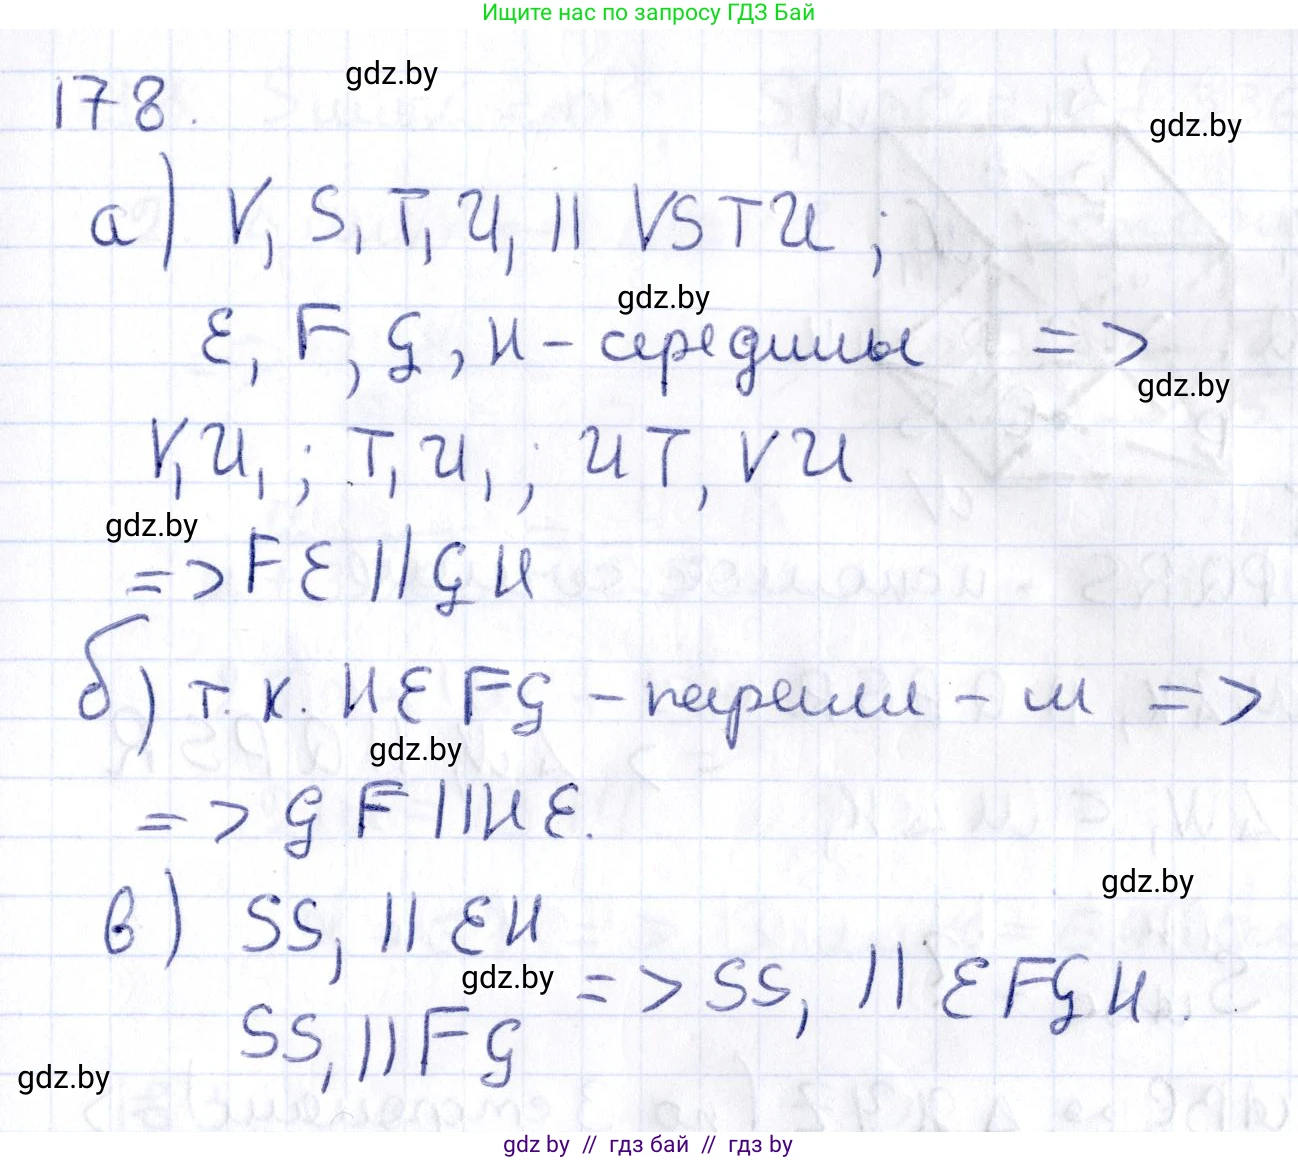 Ищите нас по запросу ГДЗ Бай
178.
gdz.by
gdz.by
а) V₁S₁T₁U₁ || VSTU ;
gdz.by
E, F, G, H - середины =>
gdz.by
V₁U₁ ; T₁U₁ ; UT, VU
gdz.by
=> FE || GH
б) т.к. HEFG - паралл - м =>
gdz.by
=> GF || HE.
gdz.by
в) SS₁ || EH
gdz.by
=> SS₁ || EFGH.
SS₁ || FG
gdz.by
gdz by // гдз бай // гдз by